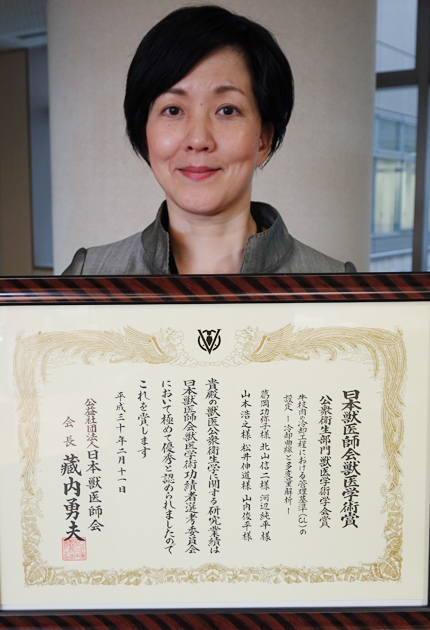 日本獣医師会獣医学術賞
公衆衛生部門獣医学術学会賞
牛枝肉の冷却工程における管理基準(CL)の
設定 ー冷却曲線と多変量解析ー
北山信二様 河辺純平様
山本浩之様 松井伸道様 山内俊平様
貴殿の獣医公衆衛生学に関する研究業績は
日本獣医師会獣医学術功績者選考委員会
において極めて優秀と認められましたので
これを賞します
平成三十年二月十一日
公益社団法人 日本獣医師会
会長 藏内勇夫